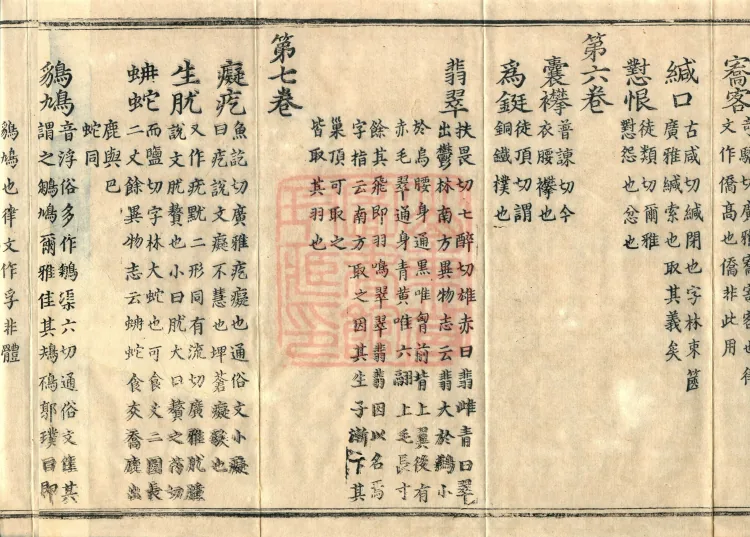 文作僑高也僑非此用
緘口 古咸切緘閉也字林束篋
廣雅緘索也取其義矣
懟恨 徒類切爾雅
懟怨也忿也
第六卷
囊襻 普諫切今
衣腰襻也
為鋌 徒頂切謂
銅鐵樸也
翡翠 扶畏切七醉切雄赤曰翡雌青曰翠
出鬱林南方異物志云翡大於鷰小
於烏腰身通黑唯胷前背上翼後有
赤毛翠通身青黄唯六翮上毛長寸
餘其飛即羽鳴翠翠翡翡因以名焉
字指云南方取之因其生子漸下其
巢頂可取之
皆取其羽也
第七卷
癡疙 魚訖切廣雅疙癡也通俗文小癡
曰疙說文癡不慧也埤蒼癡騃也
生肬 又作疣二形同有流切廣雅肬腫
說文肬贅也小曰肬大曰贅之芮切
蚺蛇 而鹽切字林大蛇也可食丈二圍長
二丈餘異物志云蚺蛇食
鹿與巳
蛇同
鳩 音浮俗多作鵓渠六切通俗文隹其
謂之鵓鳩爾雅隹其鳺鴀郭璞曰即
鳩也律文作孚非體